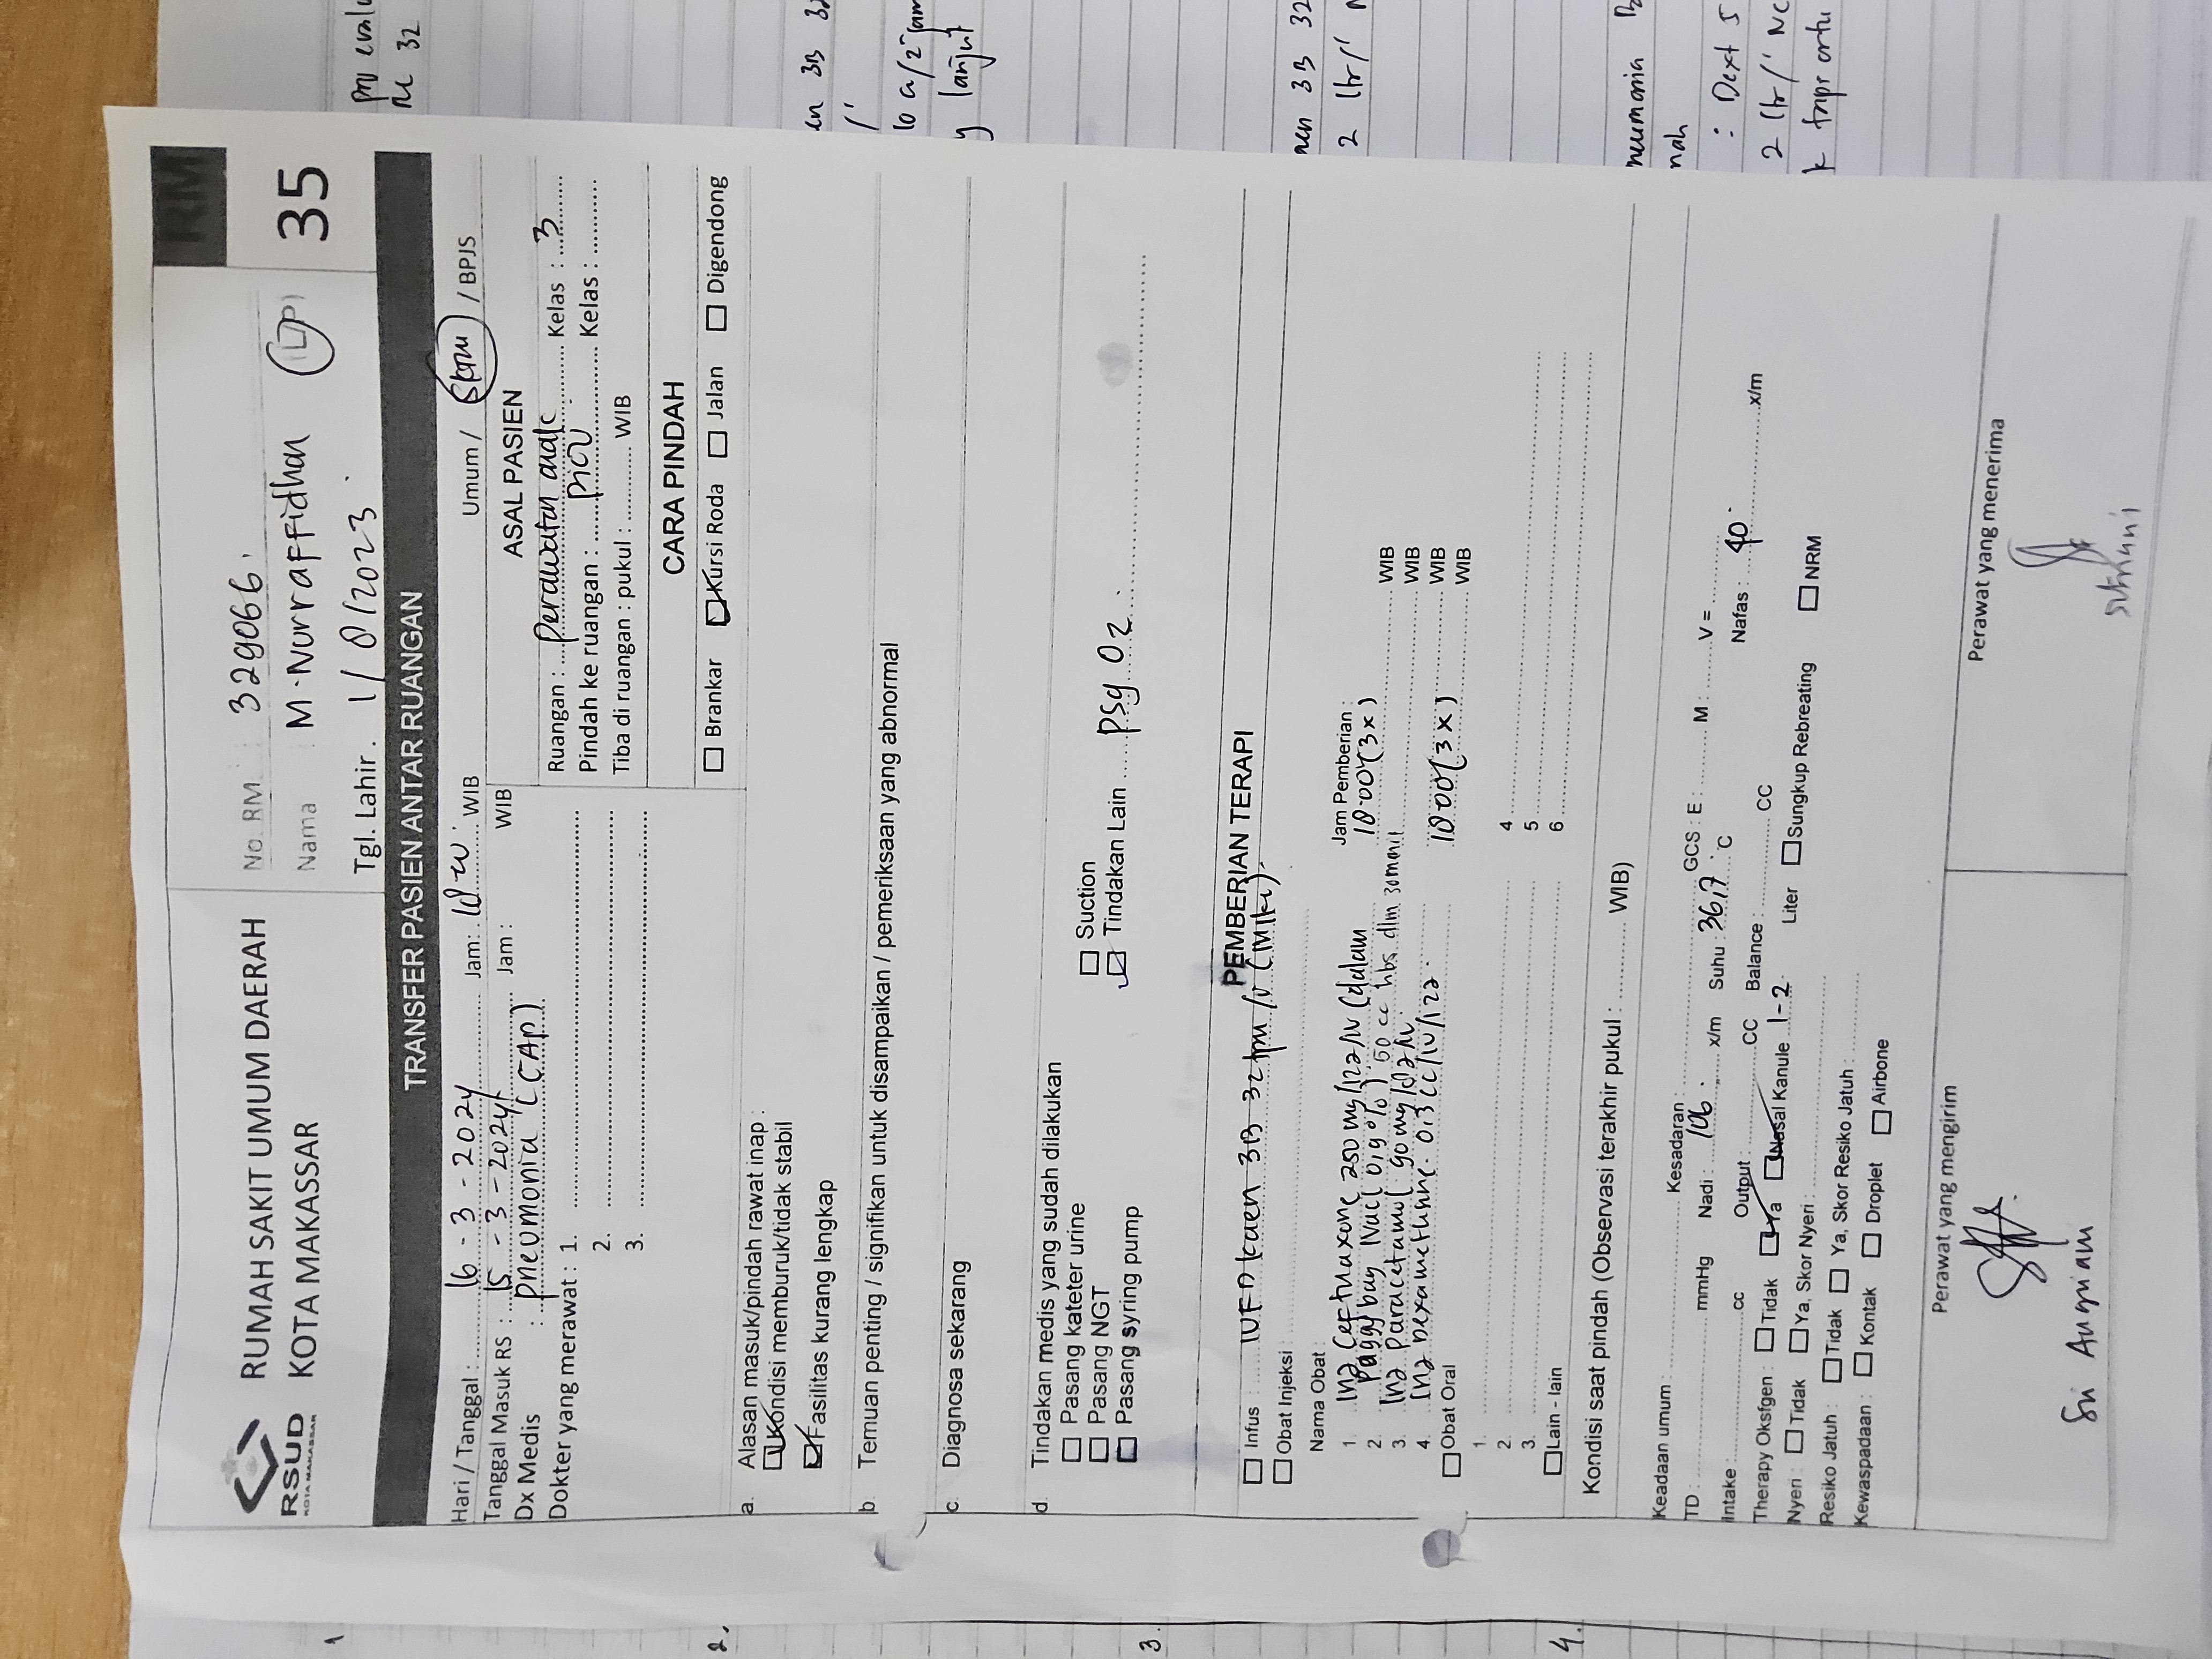 RM
35
RSUD
KOTA MAKASSAR
RUMAH SAKIT UMUM DAERAH
KOTA MAKASSAR
No RM : 329066
Nama : M. Nurraffidhan (L/P)
Tgl. Lahir. 1/8/2023
TRANSFER PASIEN ANTAR RUANGAN
Hari / Tanggal : 16 - 3 - 2024 Jam: WIB
Umum / SKTM / BPJS
Tanggal Masuk RS : 15 - 3 - 2024 Jam : WIB
Dx Medis : Pneumonia (CAP)
Dokter yang merawat : 1.
2.
3.
ASAL PASIEN
Ruangan : Perawatan anak Kelas : 3
Pindah ke ruangan : PICU Kelas :
Tiba di ruangan : pukul : WIB
CARA PINDAH
Brankar Kursi Roda Jalan Digendong
a. Alasan masuk/pindah rawat inap :
Kondisi memburuk/tidak stabil
Fasilitas kurang lengkap
b. Temuan penting / signifikan untuk disampaikan / pemeriksaan yang abnormal
c. Diagnosa sekarang
d. Tindakan medis yang sudah dilakukan
Pasang kateter urine Suction
Pasang NGT Tindakan Lain Psg O2
Pasang syring pump
PEMBERIAN TERAPI
Infus : IVFD kaen 3B 32 tpm
Obat Injeksi :
Nama Obat : Jam Pemberian :
1. Inj Ceftriaxone 250 mg/12j/iv (dalam (3x) WIB
2. 50 cc hbs dlm 30 menit WIB
3. Inj Paracetamol 90 mg WIB
4. Inj Dexamethasone 0,3 cc/iv (3x) WIB
Obat Oral
1. 4
2. 5
3. 6
Lain - lain
Kondisi saat pindah (Observasi terakhir pukul : WIB)
Keadaan umum : Kesadaran : GCS : E : M : V =
TD : mmHg Nadi : 106 x/m Suhu : 36,7 °C Nafas : 40 x/m
Intake : cc Output : CC Balance : CC
Therapy Oksfgen : Tidak Ya Nasal Kanule 1-2 Liter Sungkup Rebreating NRM
Nyeri : Tidak Ya, Skor Nyeri :
Resiko Jatuh : Tidak Ya, Skor Resiko Jatuh :
Kewaspadaan : Kontak Droplet Airbone
Perawat yang mengirim Perawat yang menerima
Sri Angriani
32
3B
lanjut
3B 32
2 ltr/'
: Dext 5
2 ltr/' NC
2.
3.
4.